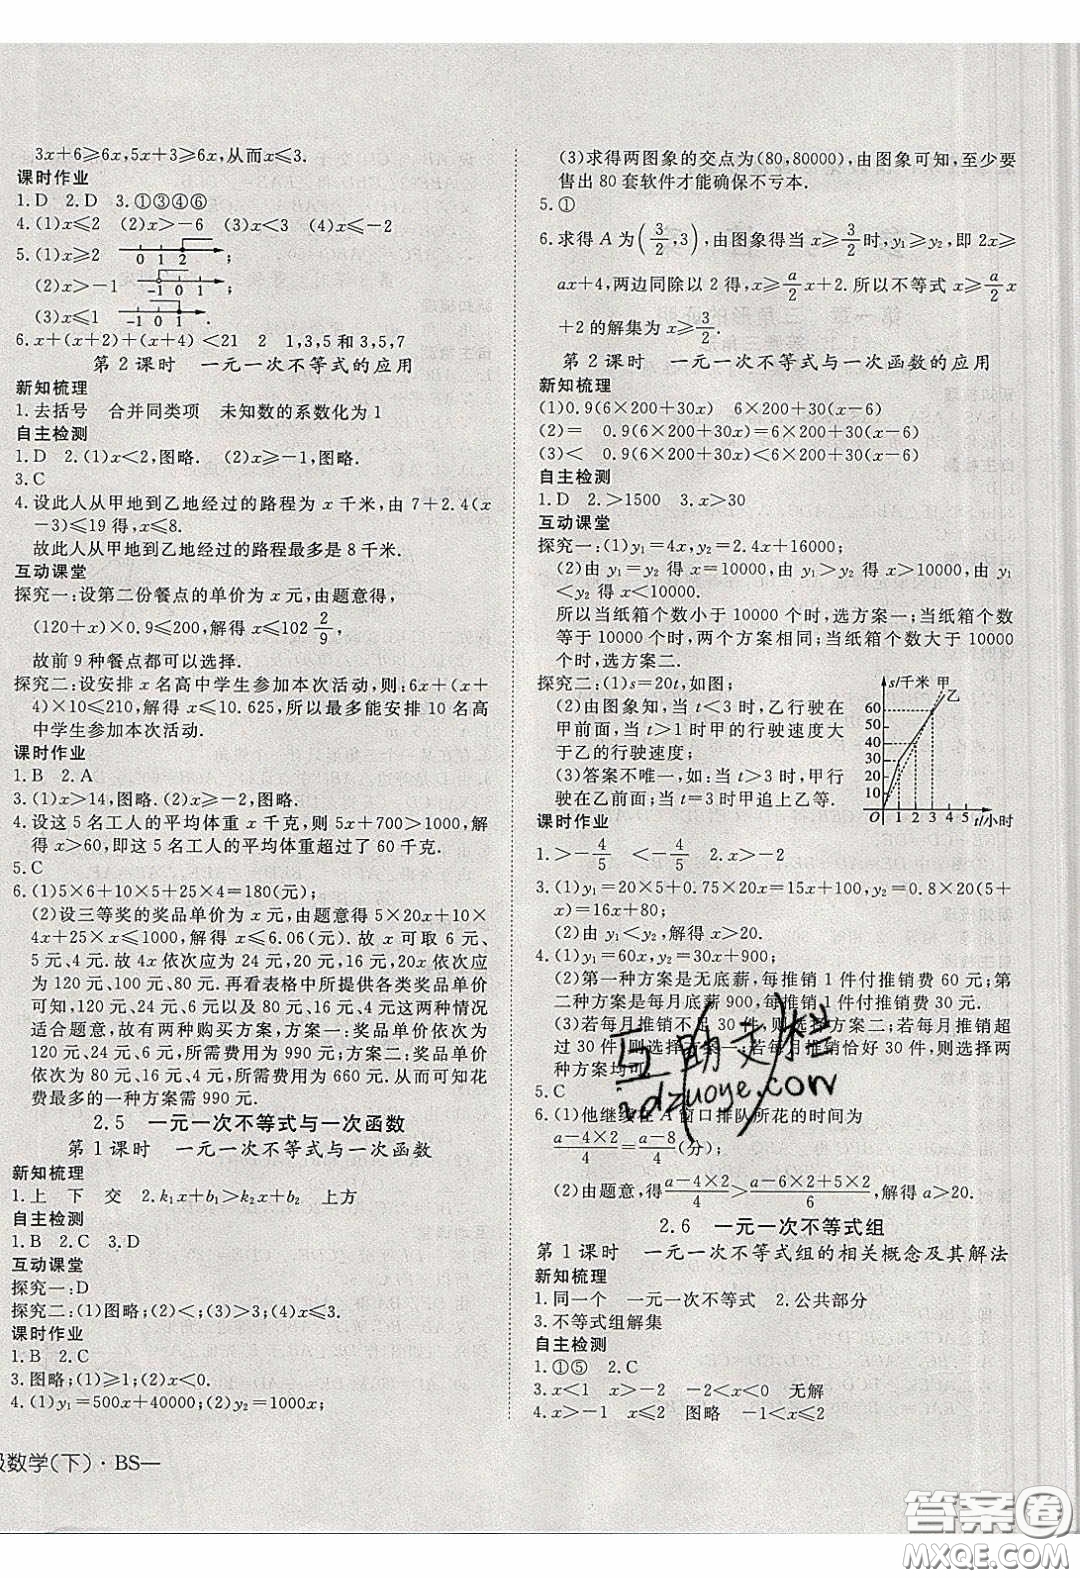 3x+6≥6x,5x+3≥6x,从而x≤3.
课时作业
1.D 2.D 3.①③④⑥
4.(1)x≤2 (2)x>-6 (3)x<3 (4)x≤-2
5.(1)x≥2 0 1 2 ;
(2)x>-1 -1 0 1 ;
(3)x≤1 -1 0 1 .
6.x+(x+2)+(x+4) <21 2 1,3,5和3,5,7
第2课时 一元一次不等式的应用
新知梳理
1.去括号 合并同类项 未知数的系数化为1
自主检测
1.D 2.(1)x<2,图略. (2)x>-6,图略.
3.C
4.设此人从甲地到乙地经过的路程为x千米,由7+2.4(x
-3)≤19得,x≤8.
故此人从甲地到乙地经过的路程最多是8千米.
互动课堂
探究一:设第二份餐点的单价为x元,由题意得,
(120+x)×0.9≤200,解得x≤102 2/9,
故前9种餐点都可以选择.
探究二:设安排x名高中学生参加本次活动,则:6x+(x+
4)×10≤210,解得x≤10.625,所以最多能安排10名高
中学生参加本次活动.
课时作业
1.B 2.A
3.(1)x>14,图略.(2)x≥-2,图略.
4.设这5名工人的平均体重x千克,则5x+700>1000,解
得x>60,即这5名工人的平均体重超过了60千克.
5.C
6.(1)5×6+10×5+25×4=180(元);
(2)设三等奖的奖品单价为x元,由题意得5×20x+10×
4x+25x≤1000,解得x≤6.06(元).故x可取6元、
5元、4元.故4x依次应为24元,20元,16元,20x依次应
为120元、100元、80元.再看表格中所提供各类奖品单价
可知,120元、24元、6元以及80元、16元、4元这两种情况
适合题意,故有两种购买方案,方案一:奖品单价依次为
120元、24元、6元,所需费用为990元;方案二:奖品单价
依次为80元、16元、4元,所需费用为660元.从而可知花
费最多的一种方案需990元.
2.5 一元一次不等式与一次函数
第1课时 一元一次不等式与一次函数
新知梳理
1.上 下 交 2.k₁x+b₁>k₂x+b₂ 上方
自主检测
1.B 2.C 3.D
互动课堂
探究一:D
探究二:(1)图略;(2)<;(3)>;(4)x≤3.
课时作业
1.B 2.C
3.图略;(1)≥1;(2)x<0.
4.(1)y₁=500x+40000;(2)y₂=1000x;
级数学(下)·BS—
(3)求得两图象的交点为(80,80000),由图象可知,至少要
售出80套软件才能确保不亏本.
5.①
6.求得A为(3/2,3),由图象得当x≥3/2时,y₁≥y₂,即2x≥
ax+4,两边同除以2得,x≥a/2 x+2.所以不等式x≥a/2 x
+2的解集为x≥3/2.
第2课时 一元一次不等式与一次函数的应用
新知梳理
(1)0.9(6×200+30x) 6×200+30(x-6)
(2)= 0.9(6×200+30x)=6×200+30(x-6)
(3)< 0.9(6×200+30x)<6×200+30(x-6)
自主检测
1.D 2.>1500 3.x>30
互动课堂
探究一:(1)y₁=4x,y₂=2.4x+16000;
(2)由y₁=y₂得x=10000,由y₁>y₂得x>10000,由y₁
<y₂得x<10000.
所以当纸箱个数小于10000个时,选方案一;当纸箱个数
等于10000个时,两个方案相同;当纸箱个数大于10000
个时,选方案二.
探究二:(1)s=20t,如图;
(2)由图象知,当t<3时,乙行驶在
甲前面,当t>1时甲的行驶速度大
于乙的行驶速度;
(3)答案不唯一,如:当t>3时,甲行
驶在乙前面;当t=3时甲追上乙等.
s/千米 甲
乙
60
50
40
30
20
10
O 1 2 3 4 5 t/小时
课时作业
1.>-4/5 <-4/5 2.x>-2
3.(1)y₁=20×5+0.75×20x=15x+100,y₂=0.8×20(5+
x)=16x+80;
(2)由y₁<y₂,解得x>20.
4.(1)y₁=60x,y₂=30x+900;
(2)第一种方案是无底薪,每推销1件付推销费60元.第
二种方案是每月底薪900,每推销1件付推销费30元.
(3)若每月推销不足30件,则选择方案二;若每月推销超
过30件,则选择方案一;若每月推销恰好30件,则选择两种
方案均可.
5.C
6.(1)他继续在A窗口排队所花的时间为
(a-4×2)/4=(a-8)/4(分);
(2)由题意,得(a-4×2)/4>(a-6×2+5×2)/6,解得a>20.
2.6 一元一次不等式组
第1课时 一元一次不等式组的相关概念及其解法
新知梳理
1.同一个 一元一次不等式 2.公共部分
3.不等式组解集
自主检测
1.①⑤ 2.C
3.x<1 x>-2 -2<x<0 无解
4.x>-1 x≤2 图略 -1<x≤2
互助文档
zdzuoye.com
答案圈
MXQE.COM